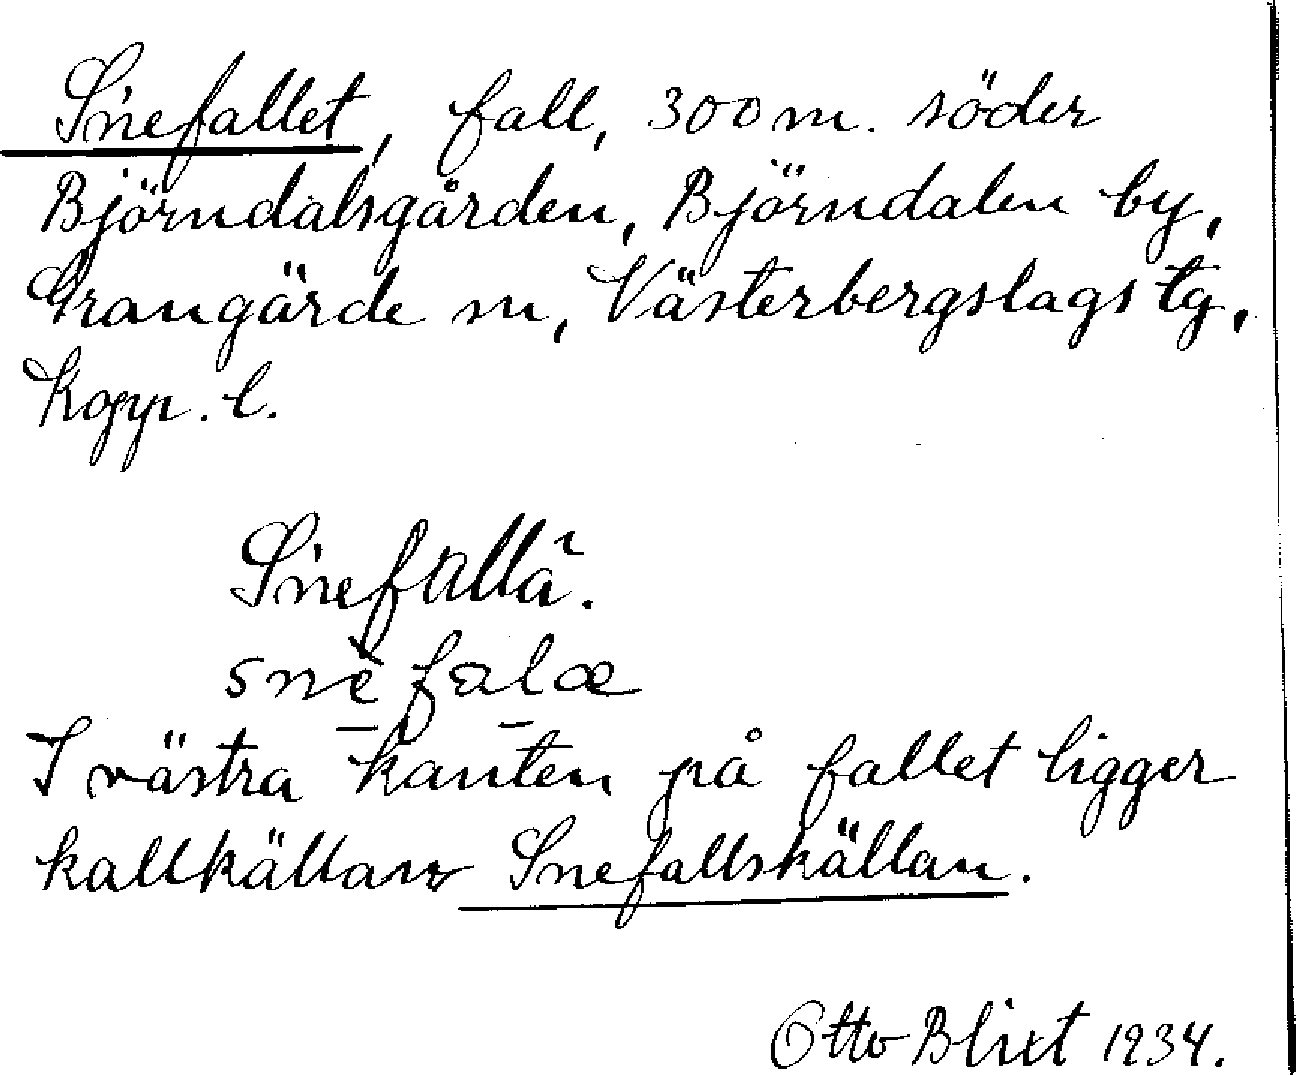 Snefallet, fall, 300 m. söder
Björndalsgården, Björndalen by,
Grangärde sn, Västerbergslags tg,
Kopp. l.
Snefallä.
snè falæ
I västra kanten på fallet ligger
kallkällan Snefallskällan.
Otto Blixt 1934.